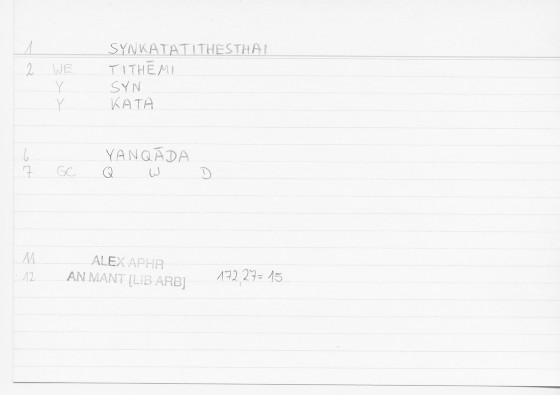 1 SYNKATATITHESTHAI
2 WE TITHĒMI
Y SYN
Y KATA
6 YANQĀDA
7 GC Q W D
11 ALEX APHR
12 AN MANT [LIB ARB] 172,27= 15